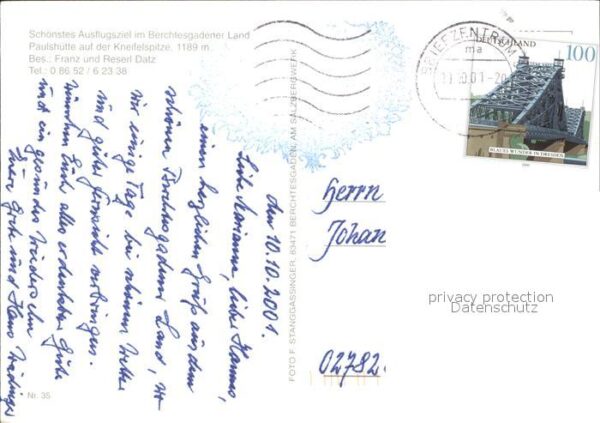 Schönstes Ausflugsziel im Berchtesgadener Land
Paulshütte auf der Kneifelspitze, 1189 m
Bes.: Franz und Reserl Datz
Tel.: 0 86 52 / 6 23 38
den 10.10.2001.
Liebe Marianne, lieber Hannes,
einen herzlichen Gruß aus dem
schönen Berchtesgadener Land, wo
wir einige Tage bei schönem Wetter
und guter Gemeinschaft verbringen.
wünschen Euch alles erdenkbar Gute
und ein gesundes Wiedersehn
Eure Grete und Hans
Nr. 35
FOTO F. STANGGASSINGER, 83471 BERCHTESGADEN, AM SALZBERGWERK
BRIEFZENTRUM
ma
DEUTSCHLAND
100
BLAUES WUNDER IN DRESDEN
Herrn
Johan
02782
privacy protection
Datenschutz